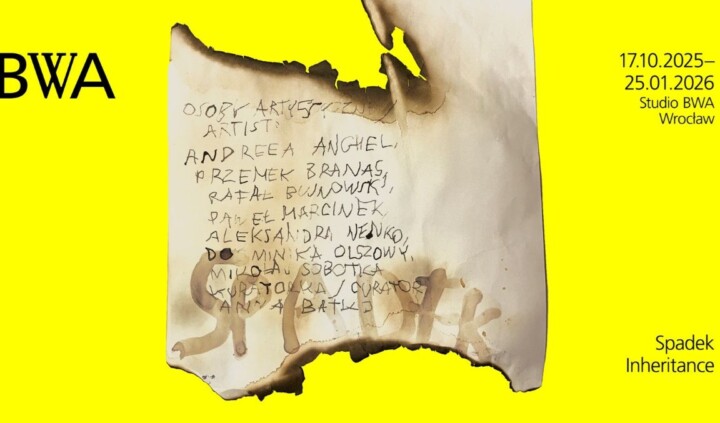 BWA
17.10.2025–
25.01.2026
Studio BWA
Wrocław
OSOBY ARTYSTYCZNE
ARTISTS
ANDREEA ANGHEL,
PRZEMEK BRANAS,
RAFAŁ BUJNOWSKI,
PAWEŁ MARCINEK,
ALEKSANDRA NENKO,
DOMINIKA OLSZOWY,
MIKOŁAJ SOBOTKA
KURATORKA / CURATOR
ANNA BATKO
SPADEK
Spadek
Inheritance